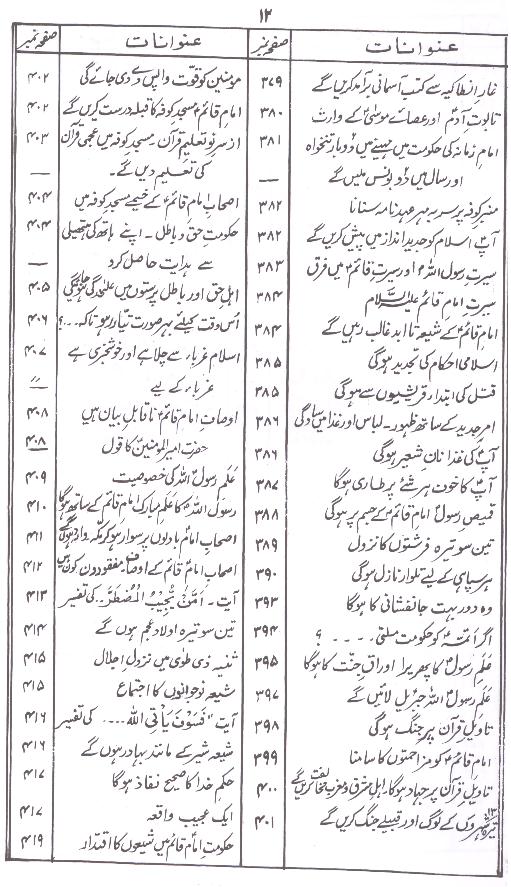 ۱۲
عنوانات صفحہ نمبر
غار انطاکیہ سے کتب آسمانی برآمد کریں گے ۳۷۹
تابوت آدمؑ اور عصائے موسیٰؑ کے وارث ۳۸۰
امام زمانہ کی حکومت میں مہینے میں دو بار تنخواہ ۳۸۱
اور سال میں دو بونس ملیں گے —
منبر کوفہ پر سربمہر عہد نامہ سنانا ۳۸۲
آپؑ اسلام کو جدید انداز میں پیش کریں گے ۳۸۲
سیرت رسول اللہؐ اور سیرت قائمؑ میں فرق ۳۸۳
سیرت امام قائم علیہ السلام ۳۸۴
امام قائمؑ کے شیعہ تا ابد غالب رہیں گے ۳۸۴
اسلامی احکام کی تجدید ہوگی ۳۸۵
قتل کی ابتدا قریشیوں سے ہوگی ۳۸۵
امر جدید کے ساتھ ظہور۔ لباس اور غذا میں سادگی ۳۸۶
آپؑ کی غذا نان شعیر ہوگی ۳۸۶
آپؑ کا خوف ہر شئے پر طاری ہوگا ۳۸۷
قمیص رسولؐ امام قائمؑ کے جسم پر ہوگی ۳۸۸
تین سو تیرہ فرشتوں کا نزول ۳۸۹
ہر سپاہی کے لیے تلوار نازل ہوگی ۳۹۰
وہ دور بہت جانفشانی کا ہوگا ۳۹۳
اگر ائمہؑ کو حکومت ملتی . . . . ؟ ۳۹۴
علم رسولؐ کا پھریرا اوراق جنت کا ہوگا ۳۹۵
علم رسولؐ اللہ جبریل لائیں گے ۳۹۷
تاویل قرآن پر جنگ ہوگی ۳۹۸
امام قائمؑ کو مزاحمتوں کا سامنا ۳۹۹
تاویل قرآن پر جہاد ہوگا، اہل مشرق و مغرب مخالفت کریں گے ۴۰۰
۱۳ تیرہ شہروں کے لوگ اور قبیلے جنگ کریں گے ۴۰۱
عنوانات صفحہ نمبر
مومنین کو قوت واپس دے دی جائے گی ۴۰۲
امام قائمؑ مسجد کوفہ کا قبلہ درست کریں گے ۴۰۲
از سر نو تعلیم قرآن۔ مسجد کوفہ میں عجمی قرآن ۴۰۳
کی تعلیم دیں گے۔ —
اصحاب امام قائمؑ کے خیمے مسجد کوفہ میں ۴۰۴
حکومت حق و باطل۔ اپنے ہاتھ کی ہتھیلی ۴۰۴
سے ہدایت حاصل کرد —
اہل حق اور باطل پرستوں میں علیحدگی ہو جائیگی ۴۰۵
اُس وقت کیلئے بہر صورت تیار ہو تاکہ...؟ ۴۰۶
اسلام غرباء سے چلا ہے اور خوشخبری ہے ۴۰۷
غرباء کے لیے —
اوصاف امام قائمؑ ناقابل بیان ہیں ۴۰۸
حضرت امیر المومنینؑ کا قول ۴۰۸
علم رسولؐ اللہ کی خصوصیت ۴۰۹
رسول اللہؐ کا علم مبارک امام قائمؑ کے ساتھ ہوگا ۴۱۰
اصحاب امامؑ بادلوں پر سوار ہو کر مکہ وارد ہوں گے ۴۱۱
اصحاب امام قائمؑ کے اوصاف، مفقودون کون ہیں ۴۱۲
آیت۔ اَمَّنْ یُّجِیْبُ الْمُضْطَرَّ...کی تفسیر ۴۱۳
تین سو تیرہ اولاد عجم ہوں گے ۴۱۴
ثنیہ ذی طویٰ میں نزول اجلال ۴۱۵
شیعہ نوجوانوں کا اجتماع ۴۱۵
آیت "فَسَوْفَ یَاْتِی اللّٰہُ.... کی تفسیر ۴۱۶
شیعہ شیر کے مانند بہادر ہوں گے ۴۱۶
حکم خدا کا صحیح نفاذ ہوگا ۴۱۷
ایک عجیب واقعہ ۴۱۷
حکومت امام قائمؑ میں شیعوں کا اقتدار ۴۱۹